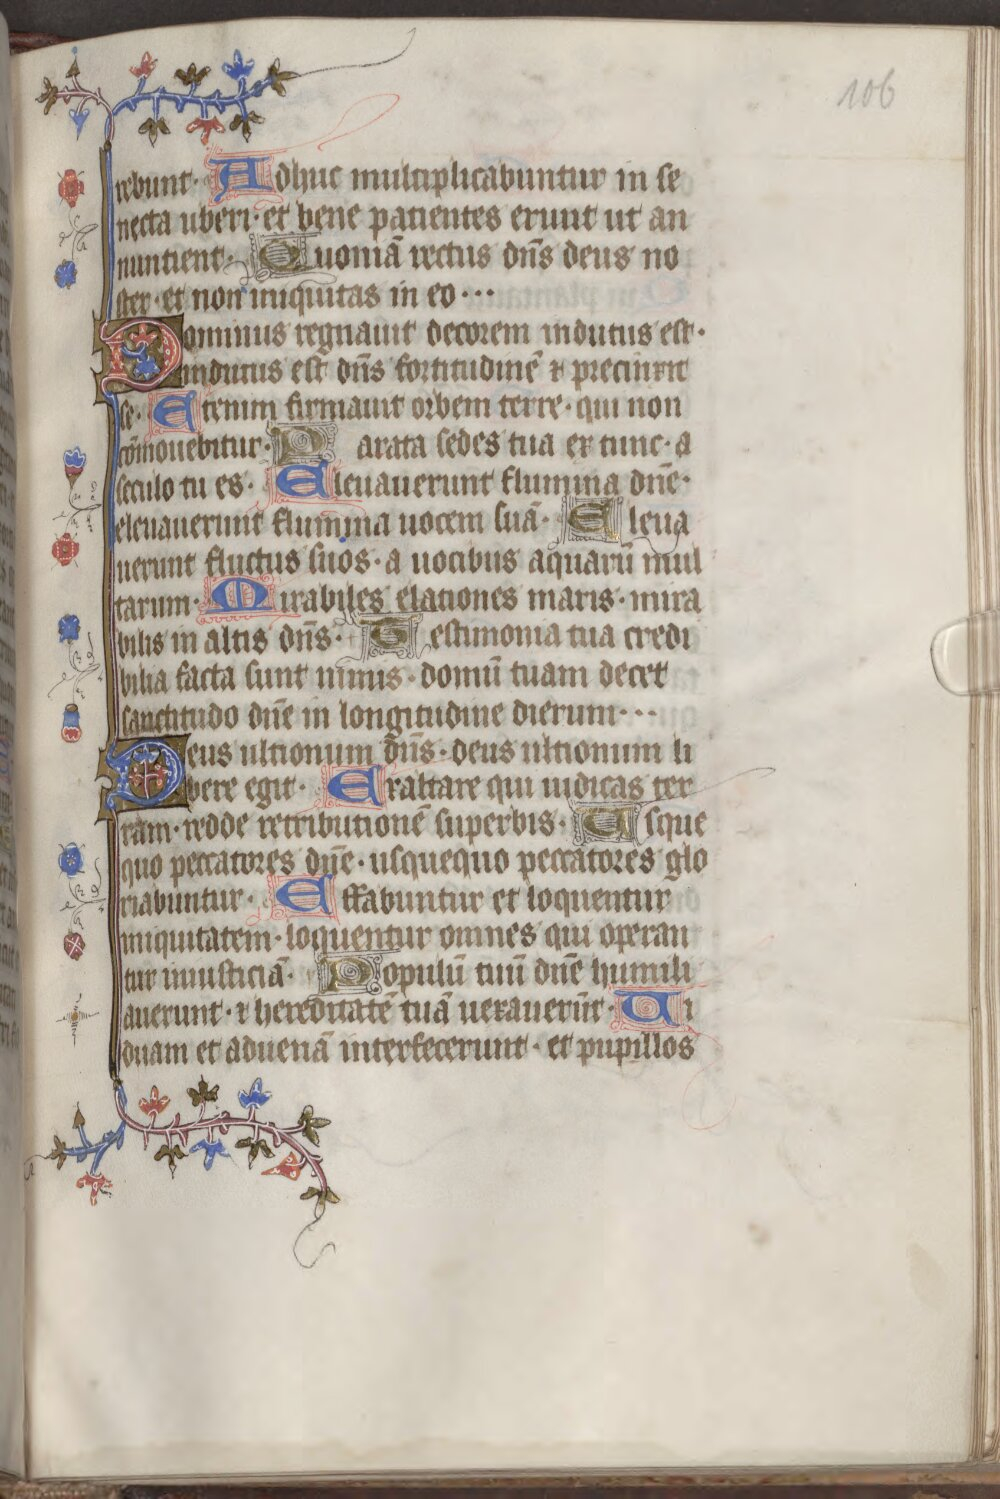 106
rebunt· Adhuc multiplicabuntur in se
necta uberi· et bene patientes erunt ut an
nuntient· Quoniã rectus dñs deus no
ster· et non iniquitas in eo···
Dominus regnauit decorem indutus est·
indutus est dñs fortitudinẽ ⁊ precinxit
se· Etenim firmauit orbem terre· qui non
cõmouebitur· Parata sedes tua ex tunc· a
seculo tu es· Eleuauerunt flumina dñe·
eleuauerunt flumina uocem suã· Eleua
uerunt fluctus suos· a uocibus aquarũ mul
tarum· Mirabiles elationes maris· mira
bilis in altis dñs· Testimonia tua credi
bilia facta sunt nimis· domũ tuam decet
sanctitudo dñe in longitudine dierum···
Deus ultionum dñs· deus ultionum li
bere egit· Exaltare qui iudicas ter
ram· redde retributionẽ superbis· Usque
quo peccatores dñe· usquequo peccatores glo
riabuntur· Effabuntur et loquentur
iniquitatem· loquentur omnes qui operan
tur iniusticiã· Populũ tuũ dñe humili
auerunt· ⁊ hereditatẽ tuã uexauerũt· Ui
duam et aduenã interfecerunt· et pupillos